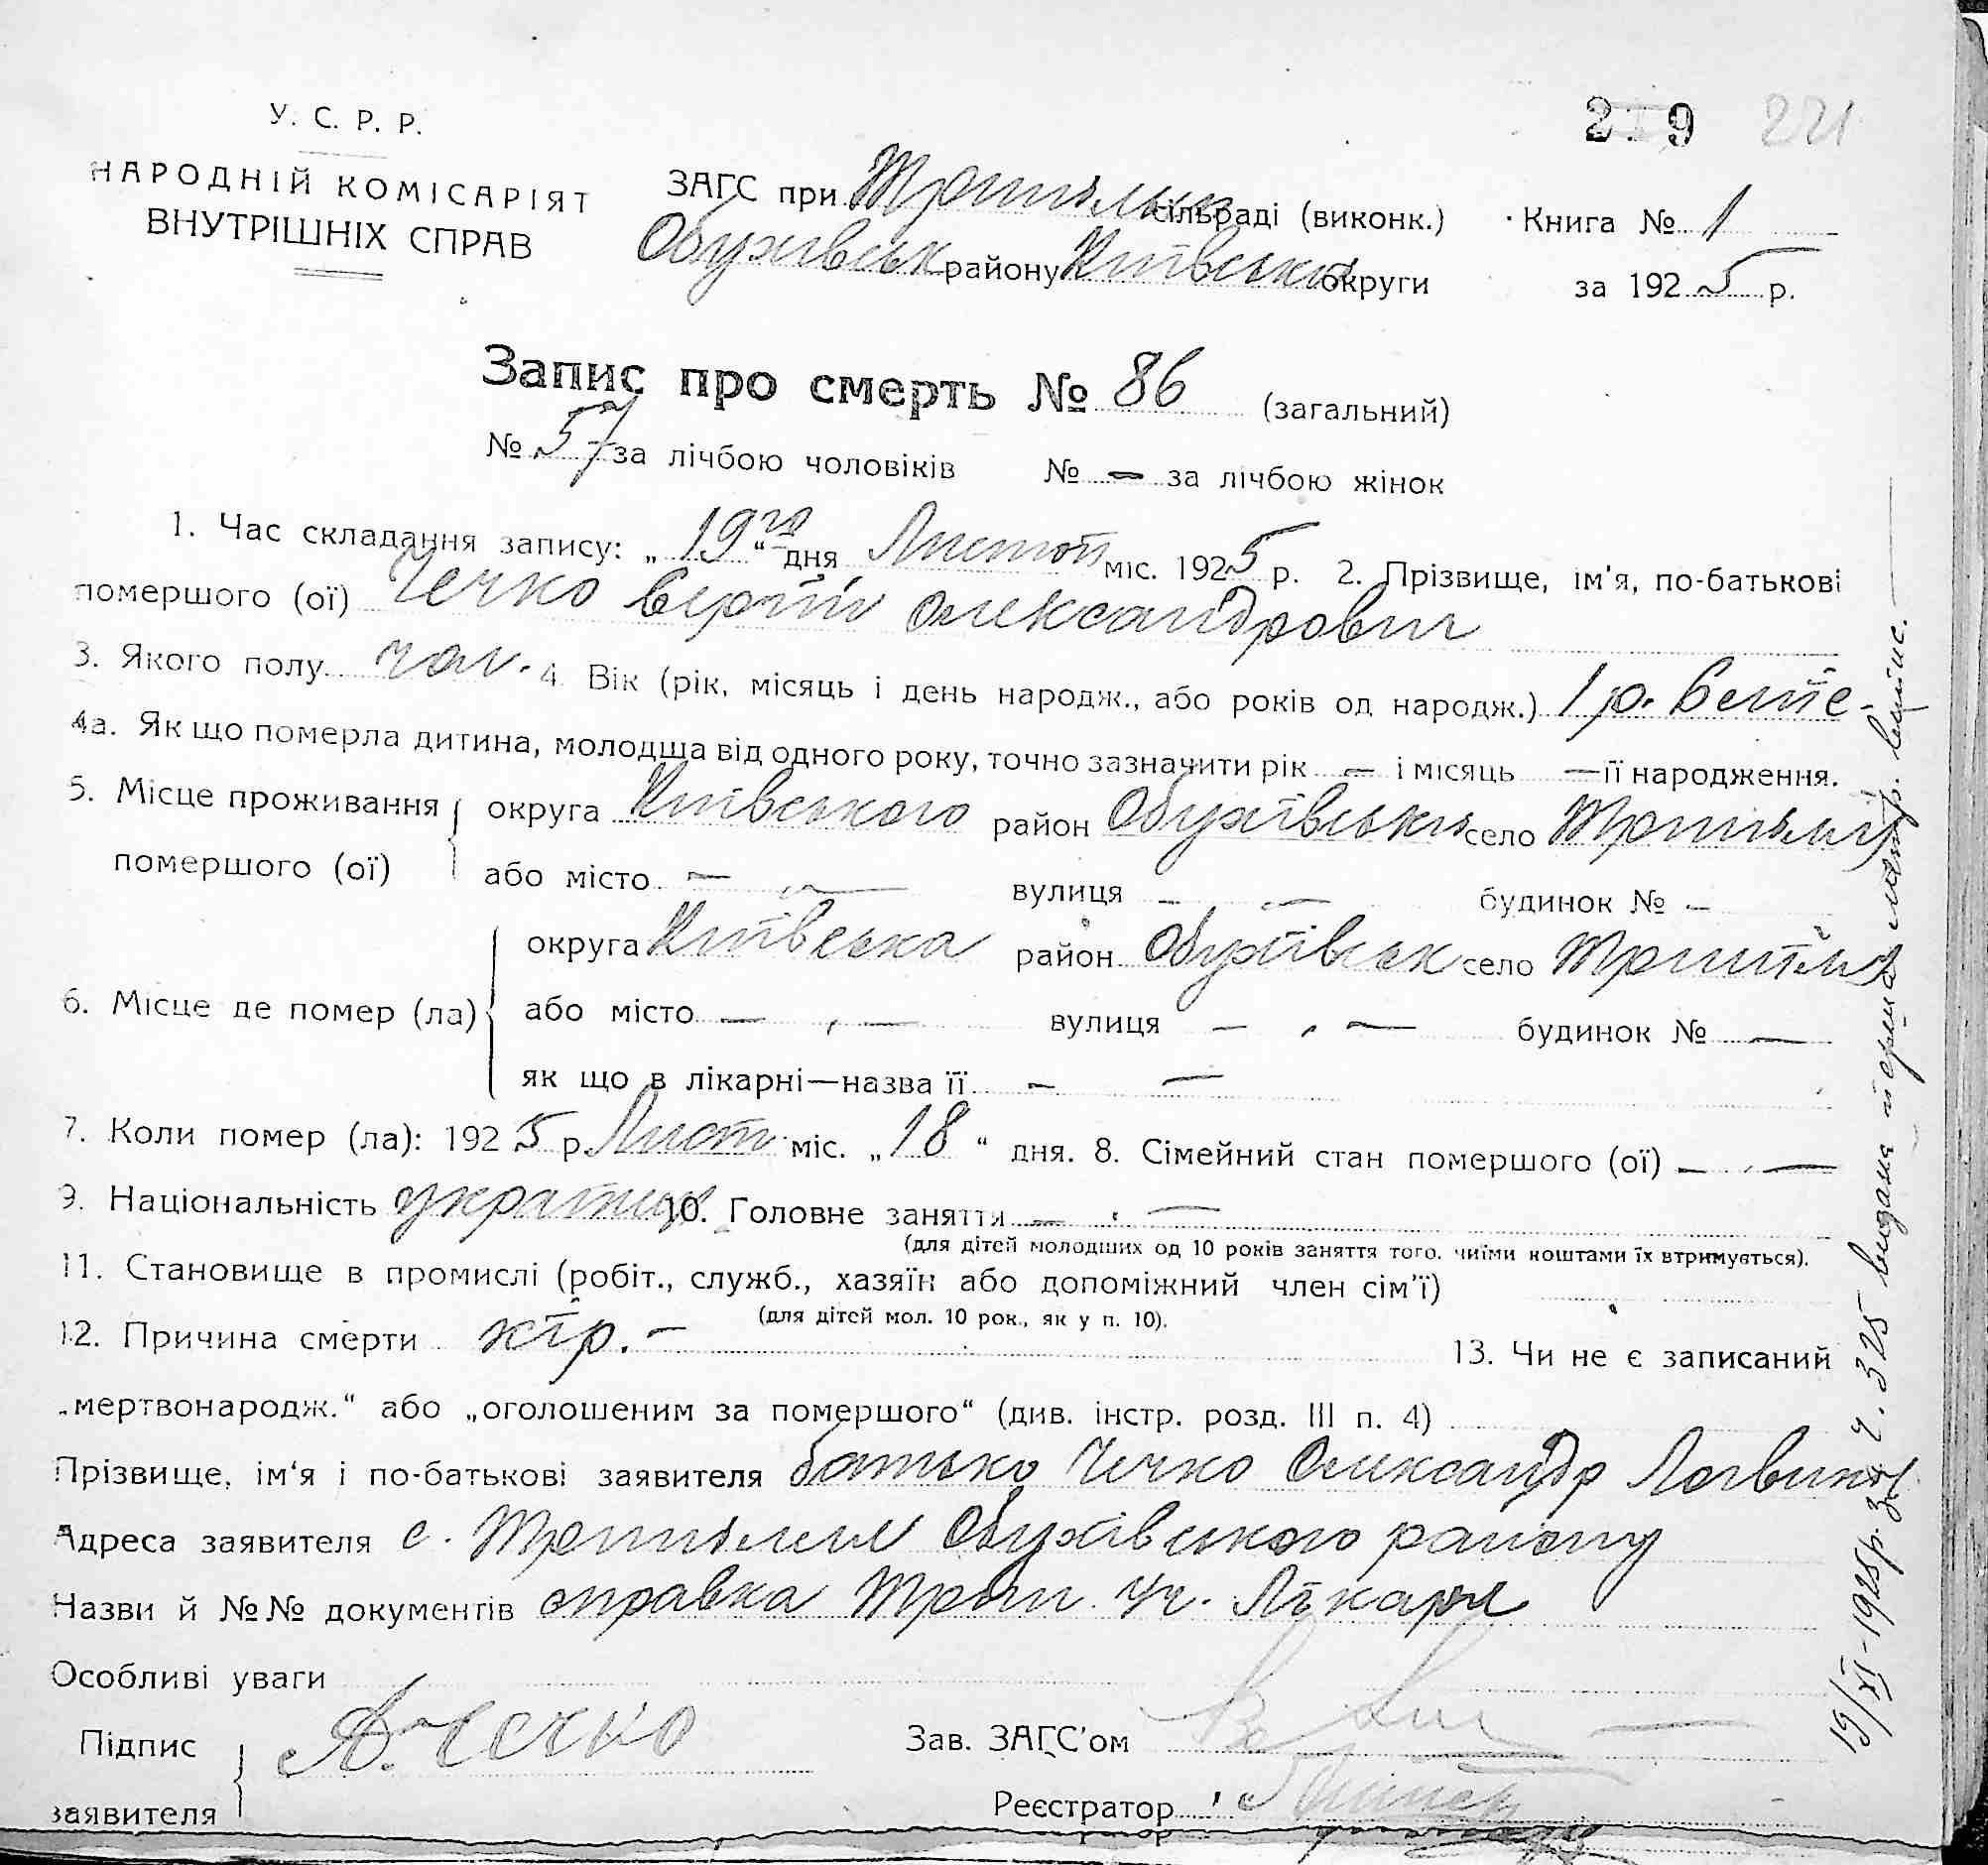 У. С. Р. Р.
НАРОДНІЙ КОМІСАРІЯТ
ВНУТРІШНІХ СПРАВ
2 9 221
ЗАГС при сільраді (виконк.) Книга № 1
Обухівськ району Київської округи за 1925 р.
Запис про смерть № 86 (загальний)
№ 57 за лічбою чоловіків № — за лічбою жінок
1. Час складання запису: „19го“ дня Листоп міс. 1925 р. 2. Прізвище, ім'я, по-батькові
помершого (ої) Чечко Сергій Олександрович
3. Якого полу чол. 4. Вік (рік, місяць і день народж., або років од народж.) 1 р.
4а. Як що померла дитина, молодша від одного року, точно зазначити рік — і місяць — її народження.
5. Місце проживання помершого (ої) округа Київського район Обухівськ село Трипілля
або місто — вулиця — будинок № —
6. Місце де помер (ла) округа Київська район Обухівськ село Трипілля
або місто — — вулиця — — будинок № —
як що в лікарні—назва її — —
7. Коли помер (ла): 1925 р. Лист міс. „18“ дня. 8. Сімейний стан помершого (ої) — —
9. Національність українц 10. Головне заняття — —
(для дітей молодших од 10 років заняття того, чиїми коштами їх втримується).
11. Становище в промислі (робіт., служб., хазяїн або допоміжний член сім'ї)
(для дітей мол. 10 рок., як у п. 10).
12. Причина смерти кір. — 13. Чи не є записаний
„мертвонародж.“ або „оголошеним за помершого“ (див. інстр. розд. III п. 4)
Прізвище, ім'я і по-батькові заявителя батько Чечко Олександр Логвинов
Адреса заявителя с. Трипілля Обухівського району
Назви й №№ документів справка Трип. уч. Лікаря
Особливі уваги
Підпис заявителя А. Чечко
Зав. ЗАГС'ом
Реєстратор
19/XI-1925р. за ч. 325 видана перша випис.